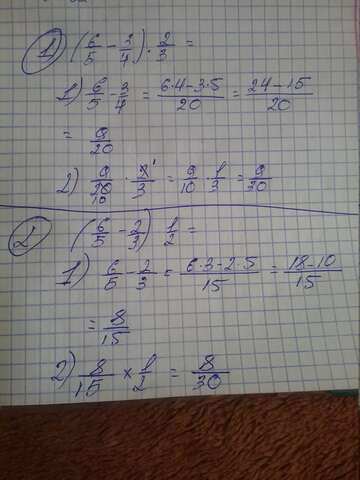 1) (6/5 - 3/4) · 2/3 =
1) 6/5 - 3/4 = (6·4-3·5)/20 = (24-15)/20
= 9/20
2) 9/20 · 2/3 = 9/10 · 1/3 = 9/30
10 1
2) (6/5 - 2/3) 1/2 =
1) 6/5 - 2/3 = (6·3-2·5)/15 = (18-10)/15
= 8/15
2) 8/15 × 1/2 = 8/30